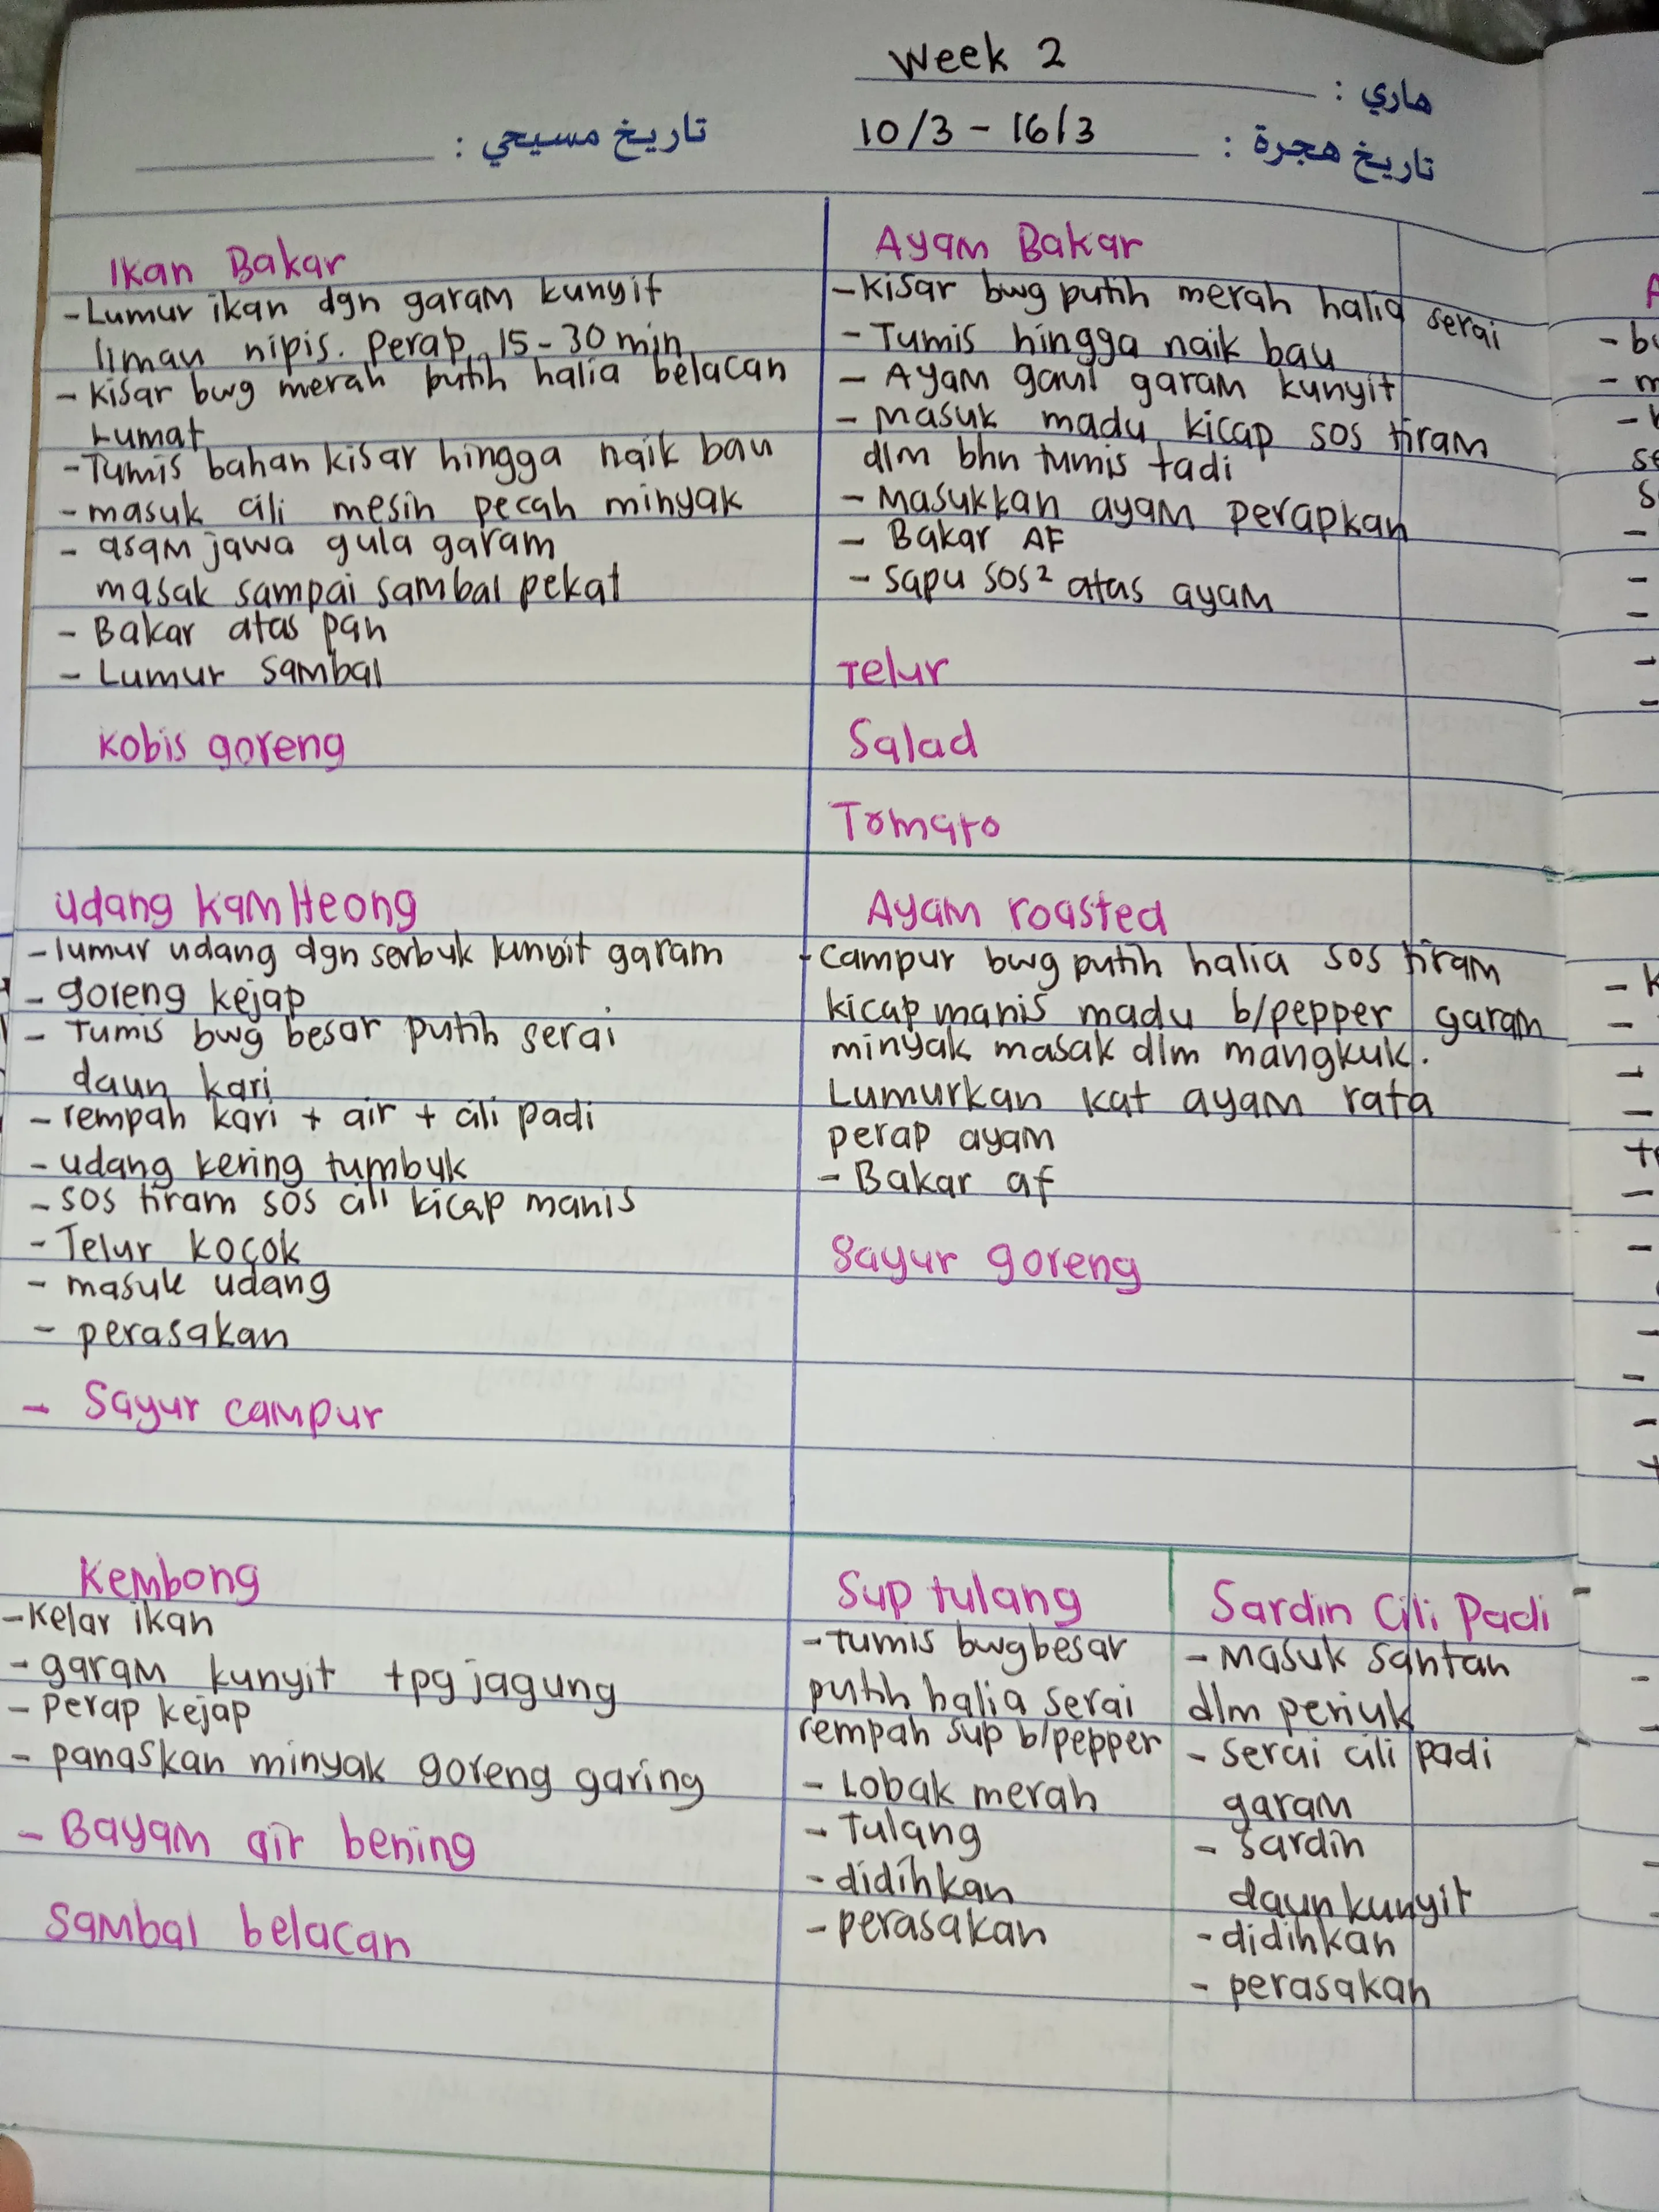 Week 2
هاري :
10/3 - 16/3
تاريخ هجرة :
تاريخ مسيحي :
Ikan Bakar
- Lumur ikan dgn garam kunyit
limau nipis. Perap 15 - 30 min
- kisar bwg merah putih halia belacan
Lumat
- Tumis bahan kisar hingga naik bau
- masuk cili mesin pecah minyak
- asam jawa gula garam
masak sampai sambal pekat
- Bakar atas pan
- Lumur sambal
Kobis goreng
Ayam Bakar
- Kisar bwg putih merah halia serai
- Tumis hingga naik bau
- Ayam gaul garam kunyit
- Masuk madu kicap sos tiram
dlm bhn tumis tadi
- Masukkan ayam perapkan
- Bakar AF
- sapu sos² atas ayam
Telur
Salad
Tomato
Udang Kam Heong
- lumur udang dgn serbuk kunyit garam
- goreng kejap
- Tumis bwg besar putih serai
daun kari
- rempah kari + air + cili padi
- udang kering tumbuk
- sos tiram sos cili kicap manis
- Telur kocok
- masuk udang
- perasakan
- Sayur campur
Ayam roasted
- campur bwg putih halia sos tiram
kicap manis madu b/pepper garam
minyak masak dlm mangkuk.
Lumurkan kat ayam rata
perap ayam
- Bakar af
Sayur goreng
Kembong
- Kelar ikan
- garam kunyit tpg jagung
- Perap kejap
- panaskan minyak goreng garing
- Bayam air bening
Sambal belacan
Sup tulang
- Tumis bwg besar
putih halia serai
rempah sup b/pepper
- Lobak merah
- Tulang
- didihkan
- perasakan
Sardin Cili Padi
- Masuk santan
dlm periuk
- serai cili padi
garam
- sardin
daun kunyit
- didihkan
- perasakan